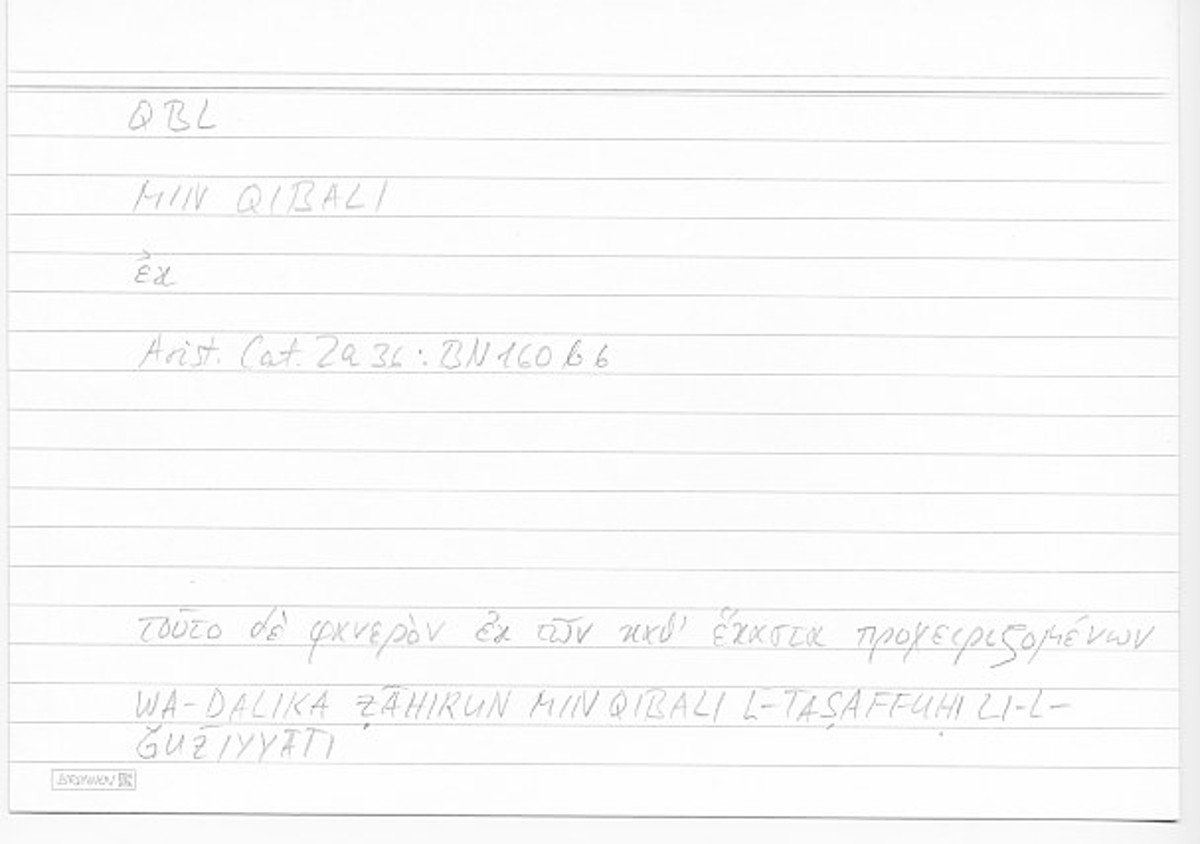 QBL
MIN QIBALI
ἐκ
Arist. Cat. 2a36: BN160b6
τοῦτο δὲ φανερὸν ἐκ τῶν καθ' ἕκαστα προχειριζομένων
WA-DALIKA ẒĀHIRUN MIN QIBALI L-TAṢAFFUḤI LI-L-
ǦUZIYYĀTI
BRUNNEN